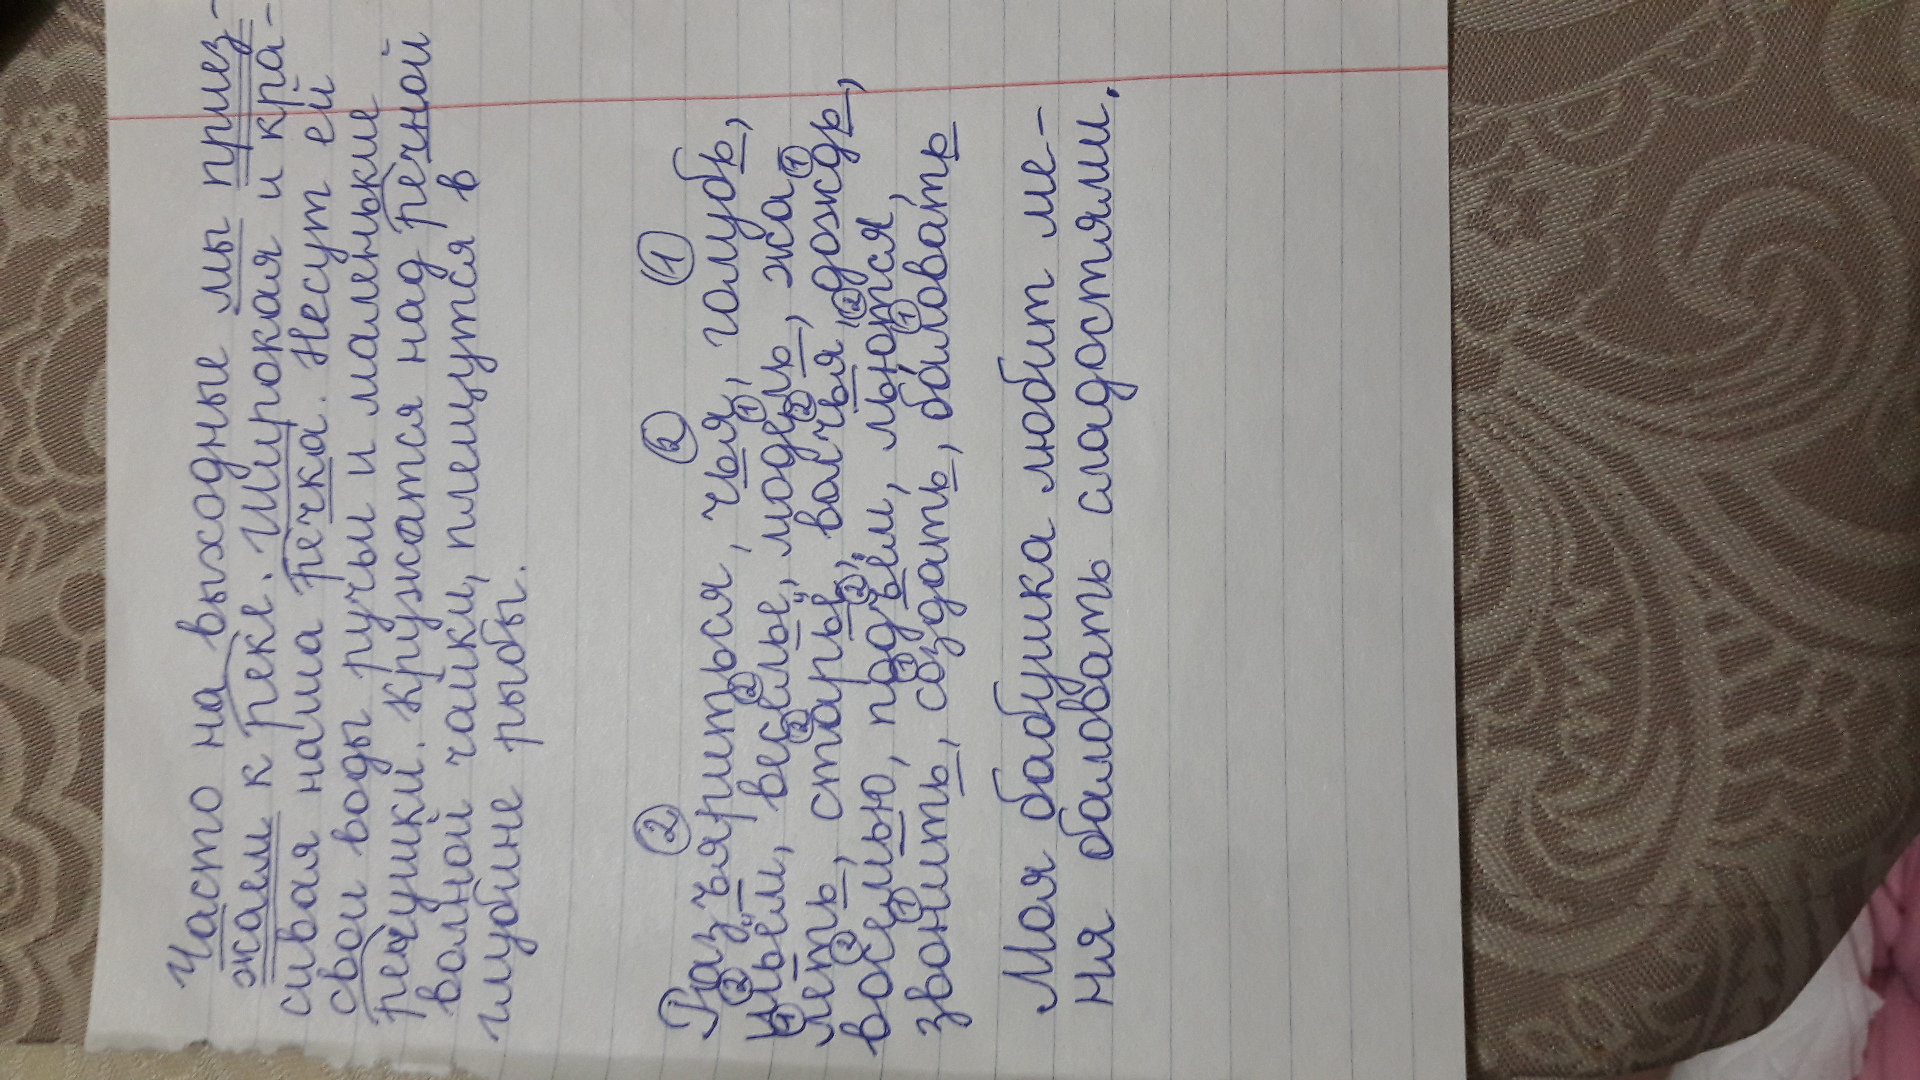 Часто на выходные мы приез-
жаем к реке. Широкая и кра-
сивая наша речка. Несут ей
свои воды ручьи и маленькие
речушки. Кружатся над речной
волной чайки, плещутся в
глубине рыбы.
② ② ①
Разъяриться, чья, голубь,
② ② ①
шьём, веселье, модель, жа
① ② ② ①
леть, старьё, волчья, дождь,
② ② ②
восемью, подъём, льются,
① ① ①
звонить, создать, баловать
Моя бабушка любит ме-
ня баловать сладостями.